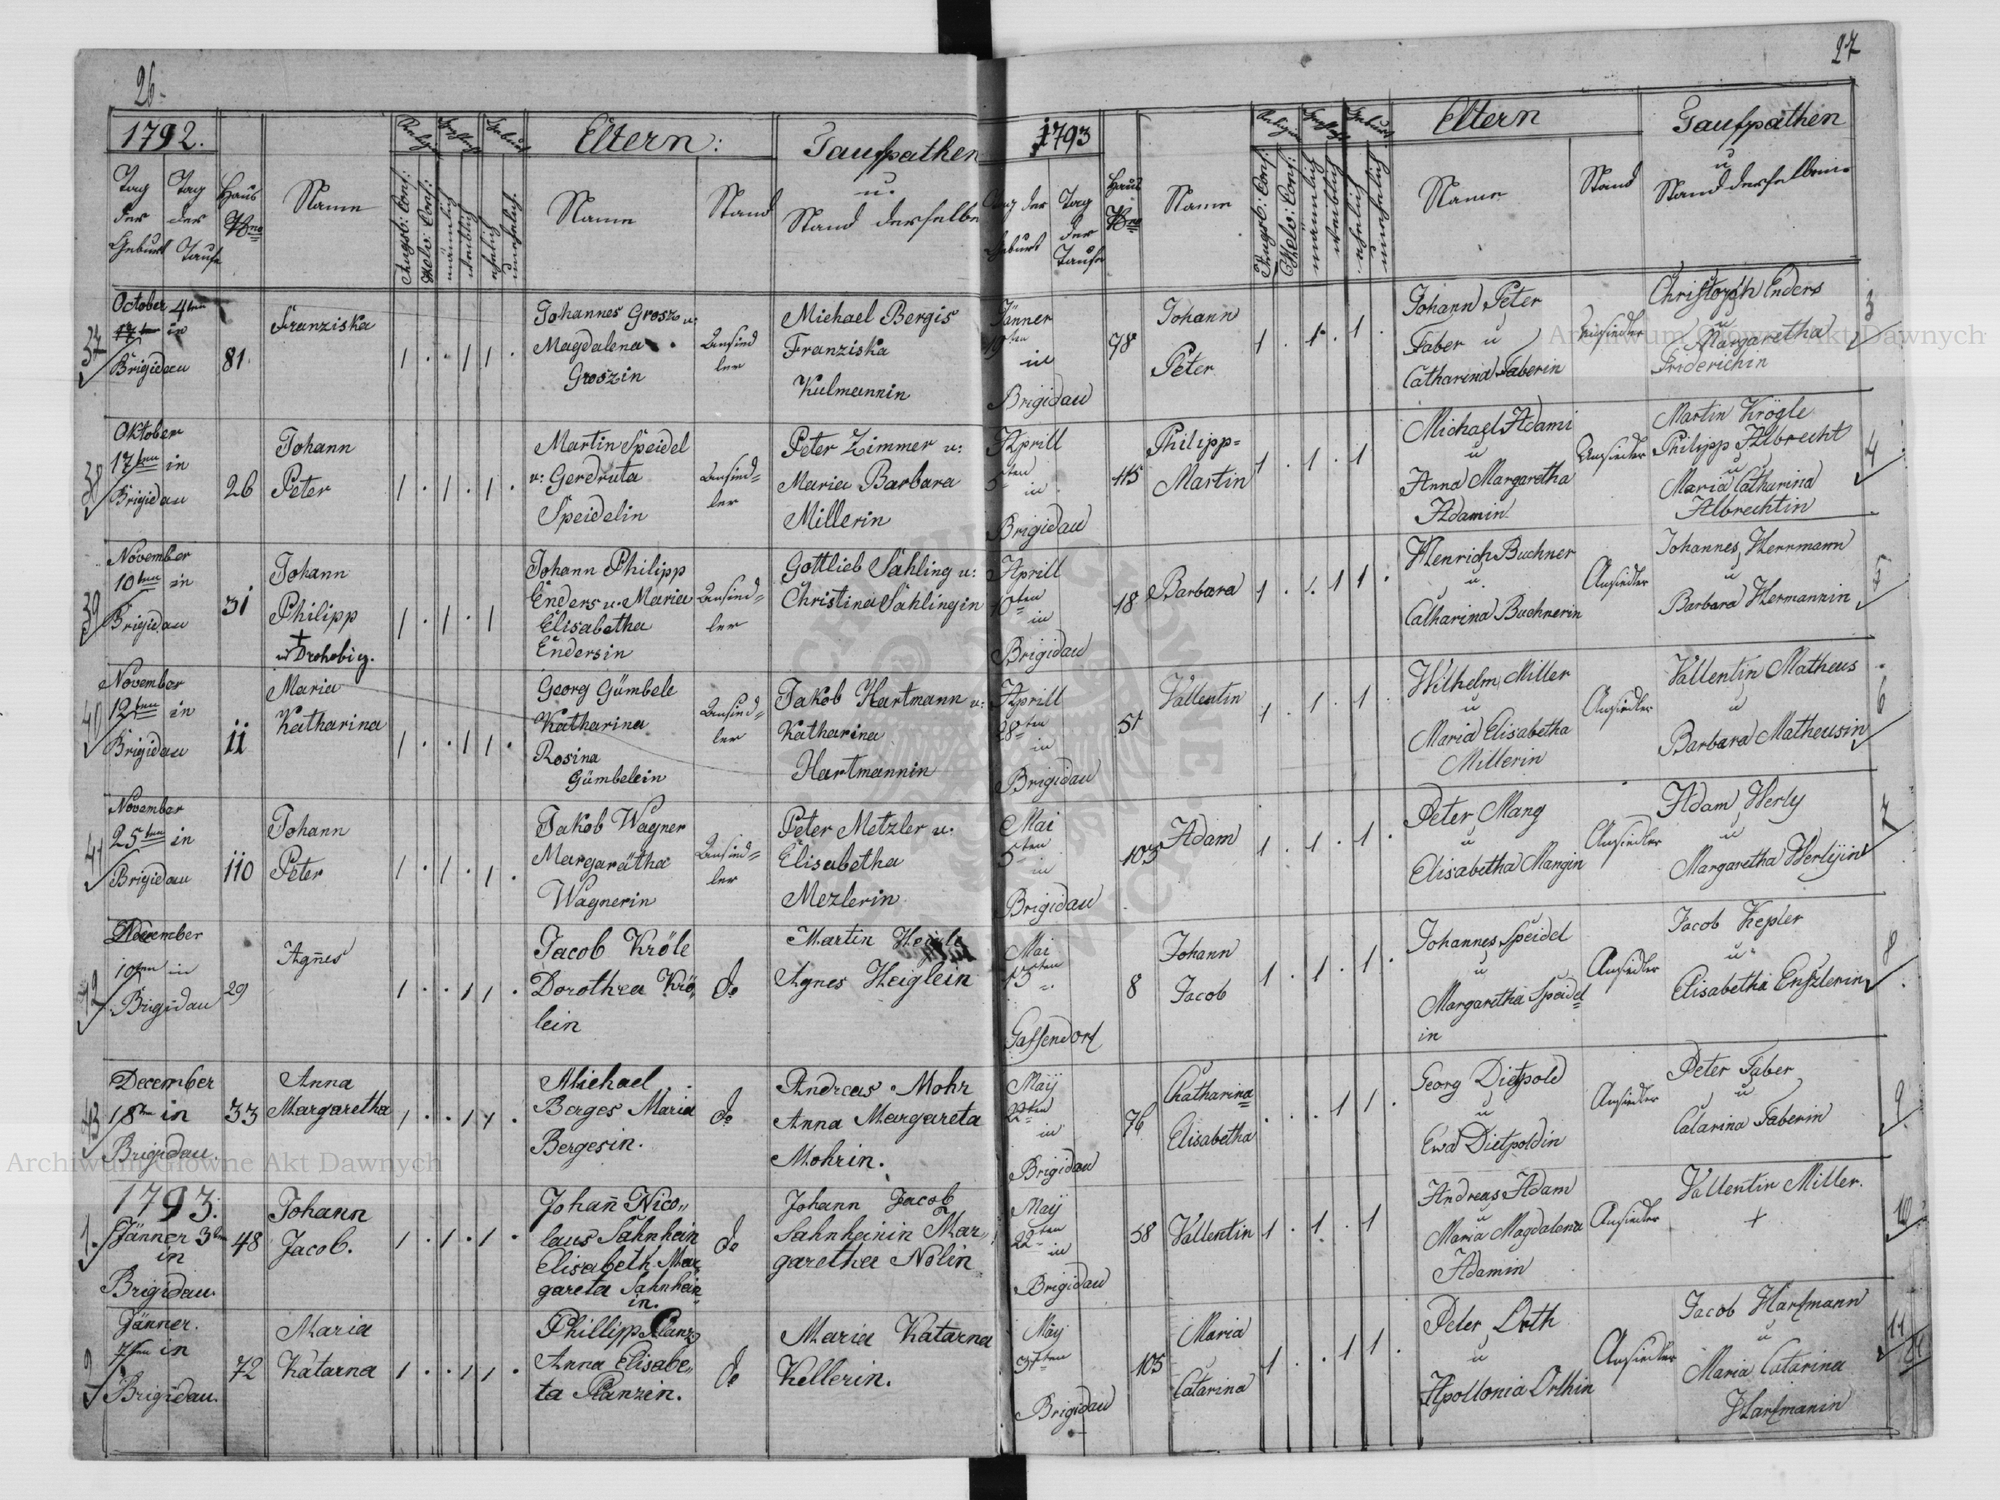 26.
1792.
Eltern:
Taufpathen
u.
Stand derselbe
Tag der Geburt
Tag der Taufe
Haus Nro
Name
Augsb: Conf:
Helv: Conf:
männlich
weiblich
ehelich
unehelich
Name
Stand
37
October 4ten
17ten in
Brigidau
81
Franziska
Johannes Grosz u:
Magdalena
Groszin
Ansied
ler
Michael Bergis
Franziska
Kulmannin
38
Oktober
17ten in
Brigidau
26
Johann
Peter
Martin Speidel
u: Gerdruta
Speidelin
Ansied=
ler
Peter Zimmer u:
Maria Barbara
Millerin
39
November
10ten in
Brigidau
31
Johann
Philipp
Drohobicz.
Johann Philipp
Enders u. Maria
Elisabetha
Endersin
Ansied=
ler
Gottlieb Sahling u:
Christina Sahlingin
40
November
12ten in
Brigidau
11
Maria
Katharina
Georg Gümbele
Katharina
Rosina
Gümbelein
Ansied=
ler
Jakob Hartmann u:
Katharina
Hartmannin
41
November
25ten in
Brigidau
110
Johann
Peter
Jakob Wagner
Margarätha
Wagnerin
Ansied=
ler
Peter Metzler u.
Elisabetha
Mezlerin
42
December
10ten in
Brigidau
29
Agñes
Jacob Kröle
Dorothea Krö,
lein
do
Martin Heigle
Agnes Heiglein
43
December
18ten in
Brigidau.
33
Anna
Margaretha
Michael
Berges Maria
Bergesin.
do
Andreas Mohr
Anna Margareta
Mohrin.
1793.
1.
Jänner 3ten
in
Brigidau.
48
Johann
Jacob.
Johañ Nico,,
laus Sahnhein
Elisabeth Mar
gareta Sahnhein
in.
do
Johann Jacob
Sahnheinin Mar,,
garetha Nolin
2
Jänner.
7ten in
Brigidau.
72
Maria
Katarna
Phillipp Planz
Anna Elisabe,,
ta Planzin.
do
Maria Katarna
Kellerin.
27
1793
Eltern
Taufpathen
u
Stand derselben
Tag der Geburt
Tag der Taufe
Haus Nro
Name
Augsb: Conf:
Helv: Conf:
männlich
weiblich
ehelich
unehelich
Name
Stand
Jänner
19ten
in
Brigidau
78
Johann
Peter
Johann Peter
Faber u
Catharina Faberin
Ansiedler
Christoph Enders
u
Margaretha
Friderichin
3
Aprill
5ten
in
Brigidau
115
Philipp=
Martin
Michael Adami
u
Anna Margaretha
Adamin
Ansiedler
Martin Krögle
Philipp Albrecht
u
Maria Catharina
Albrechtin
4
Aprill
10ten
in
Brigidau
18
Barbara
Henrich Buchner
u
Catharina Buchnerin
Ansiedler
Johannes Herrmann
u
Barbara Hermannin
5
Aprill
28ten
in
Brigidau
51
Vallentin
Wilhelm Miller
u
Maria Elisabetha
Millerin
Ansiedler
Vallentin Matheus
u
Barbara Matheusin
6
Mai
5ten
in
Brigidau
103
Adam
Peter Mang
u
Elisabetha Mangin
Ansiedler
Adam Herly
u
Margaretha Herlyin
7
Mai
15ten
Gassendorf
8
Johann
Jacob
Johannes Speidel
u
Margaretha Speidel=
in
Ansiedler
Jacob Kepler
u
Elisabetha Enßlerin
8
Maÿ
22ten
in
Brigidau
76
Chatharina
Elisabetha
Georg Dietpold
u
Ewa Dietpoldin
Ansiedler
Peter Faber
u
Catarina Faberin
9
Maÿ
22ten
in
Brigidau
58
Vallentin
Andreas Adam
u
Maria Magdalena
Adamin
Ansiedler
Vallentin Miller.
+
10
Maÿ
31ten
Brigidau
105
Maria
Catarina
Peter Orth
u
Apollonia Orthin
Ansiedler
Jacob Harfmann
u
Maria Catarina
Harfmanin
11
Archiwum Główne Akt Dawnych
Archiwum Główne Akt Dawnych